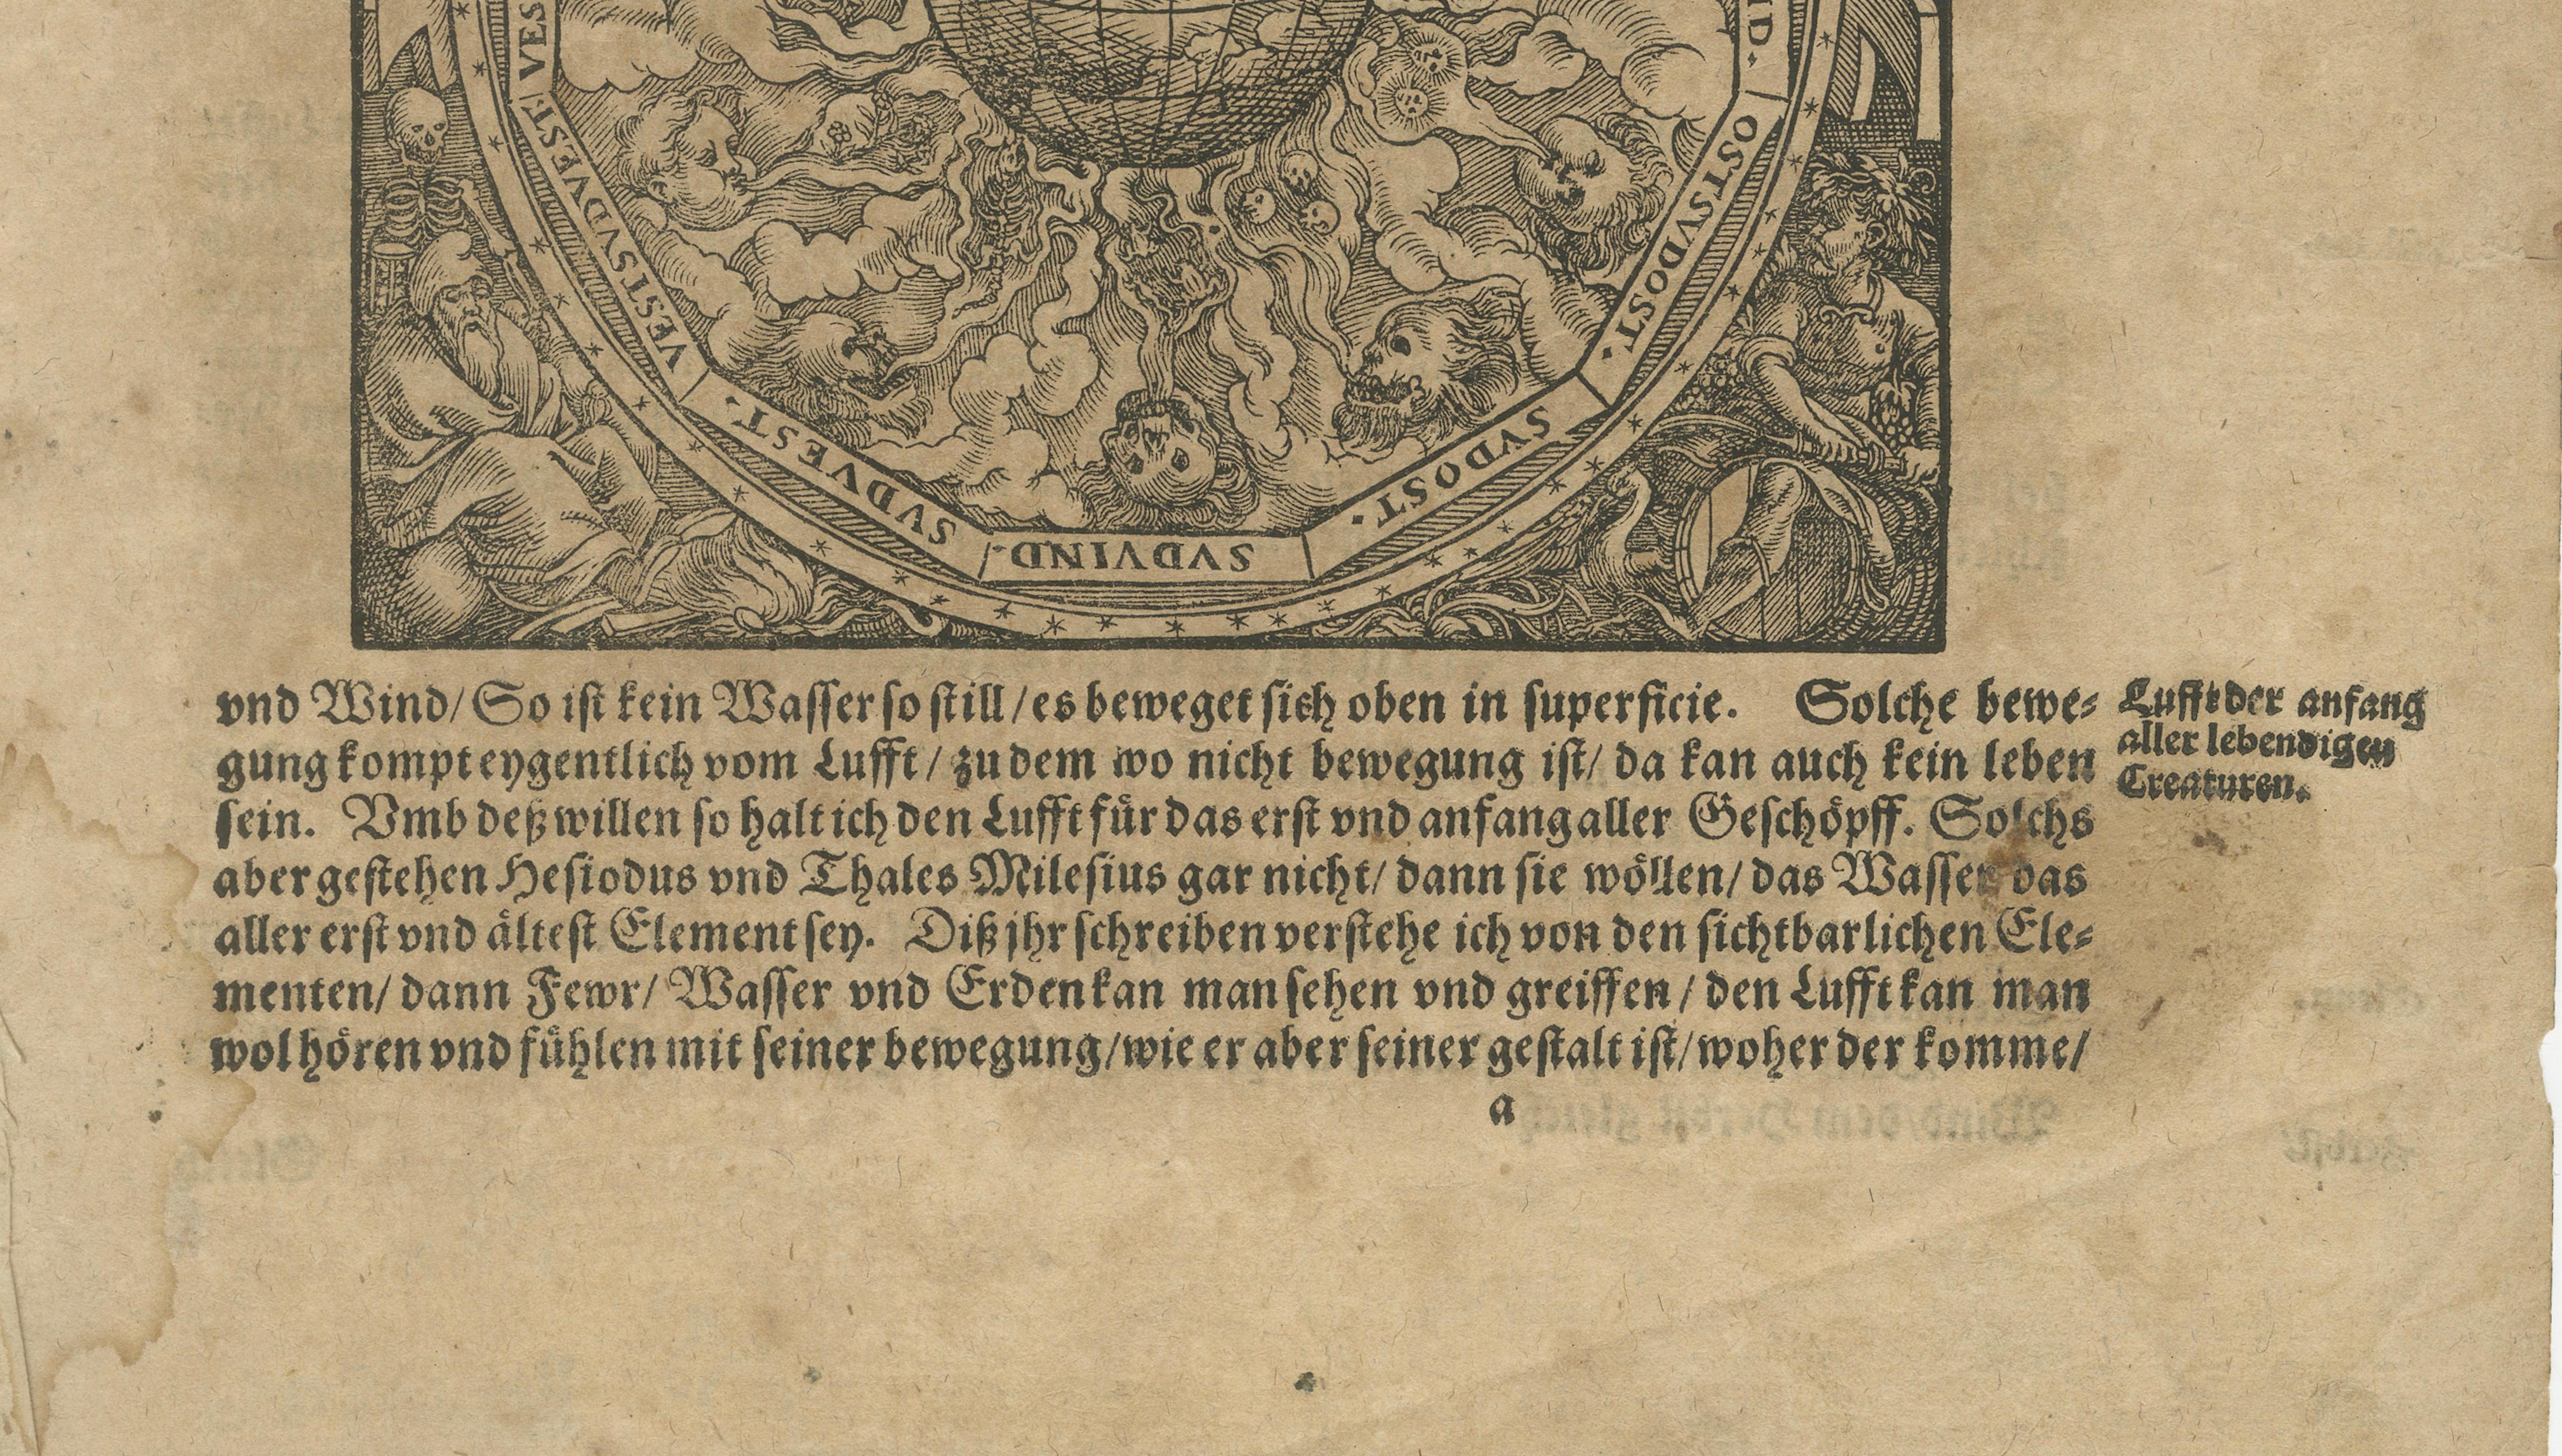 VES
VESTSVDVEST.
SVDVEST.
SVDVIND.
SVDOST.
OSTSVDOST.
ND.
vnd Wind/ So ist kein Wasser so still / es beweget sich oben in superficie. Solche bewe-
gung kompt eygentlich vom Lufft / zu dem wo nicht bewegung ist/ da kan auch kein leben
sein. Vmb deß willen so halt ich den Lufft für das erst vnd anfang aller Geschöpff. Solchs
aber gestehen Hesiodus vnd Thales Milesius gar nicht/ dann sie wöllen/ das Wasser das
aller erst vnd ältest Element sey. Diß jhr schreiben verstehe ich von den sichtbarlichen Ele-
menten/ dann Fewr/ Wasser vnd Erden kan man sehen vnd greiffen / den Lufft kan man
wol hören vnd fühlen mit seiner bewegung/ wie er aber seiner gestalt ist/ woher der komme/
a
Lufft der anfang
aller lebendigen
Creaturen.